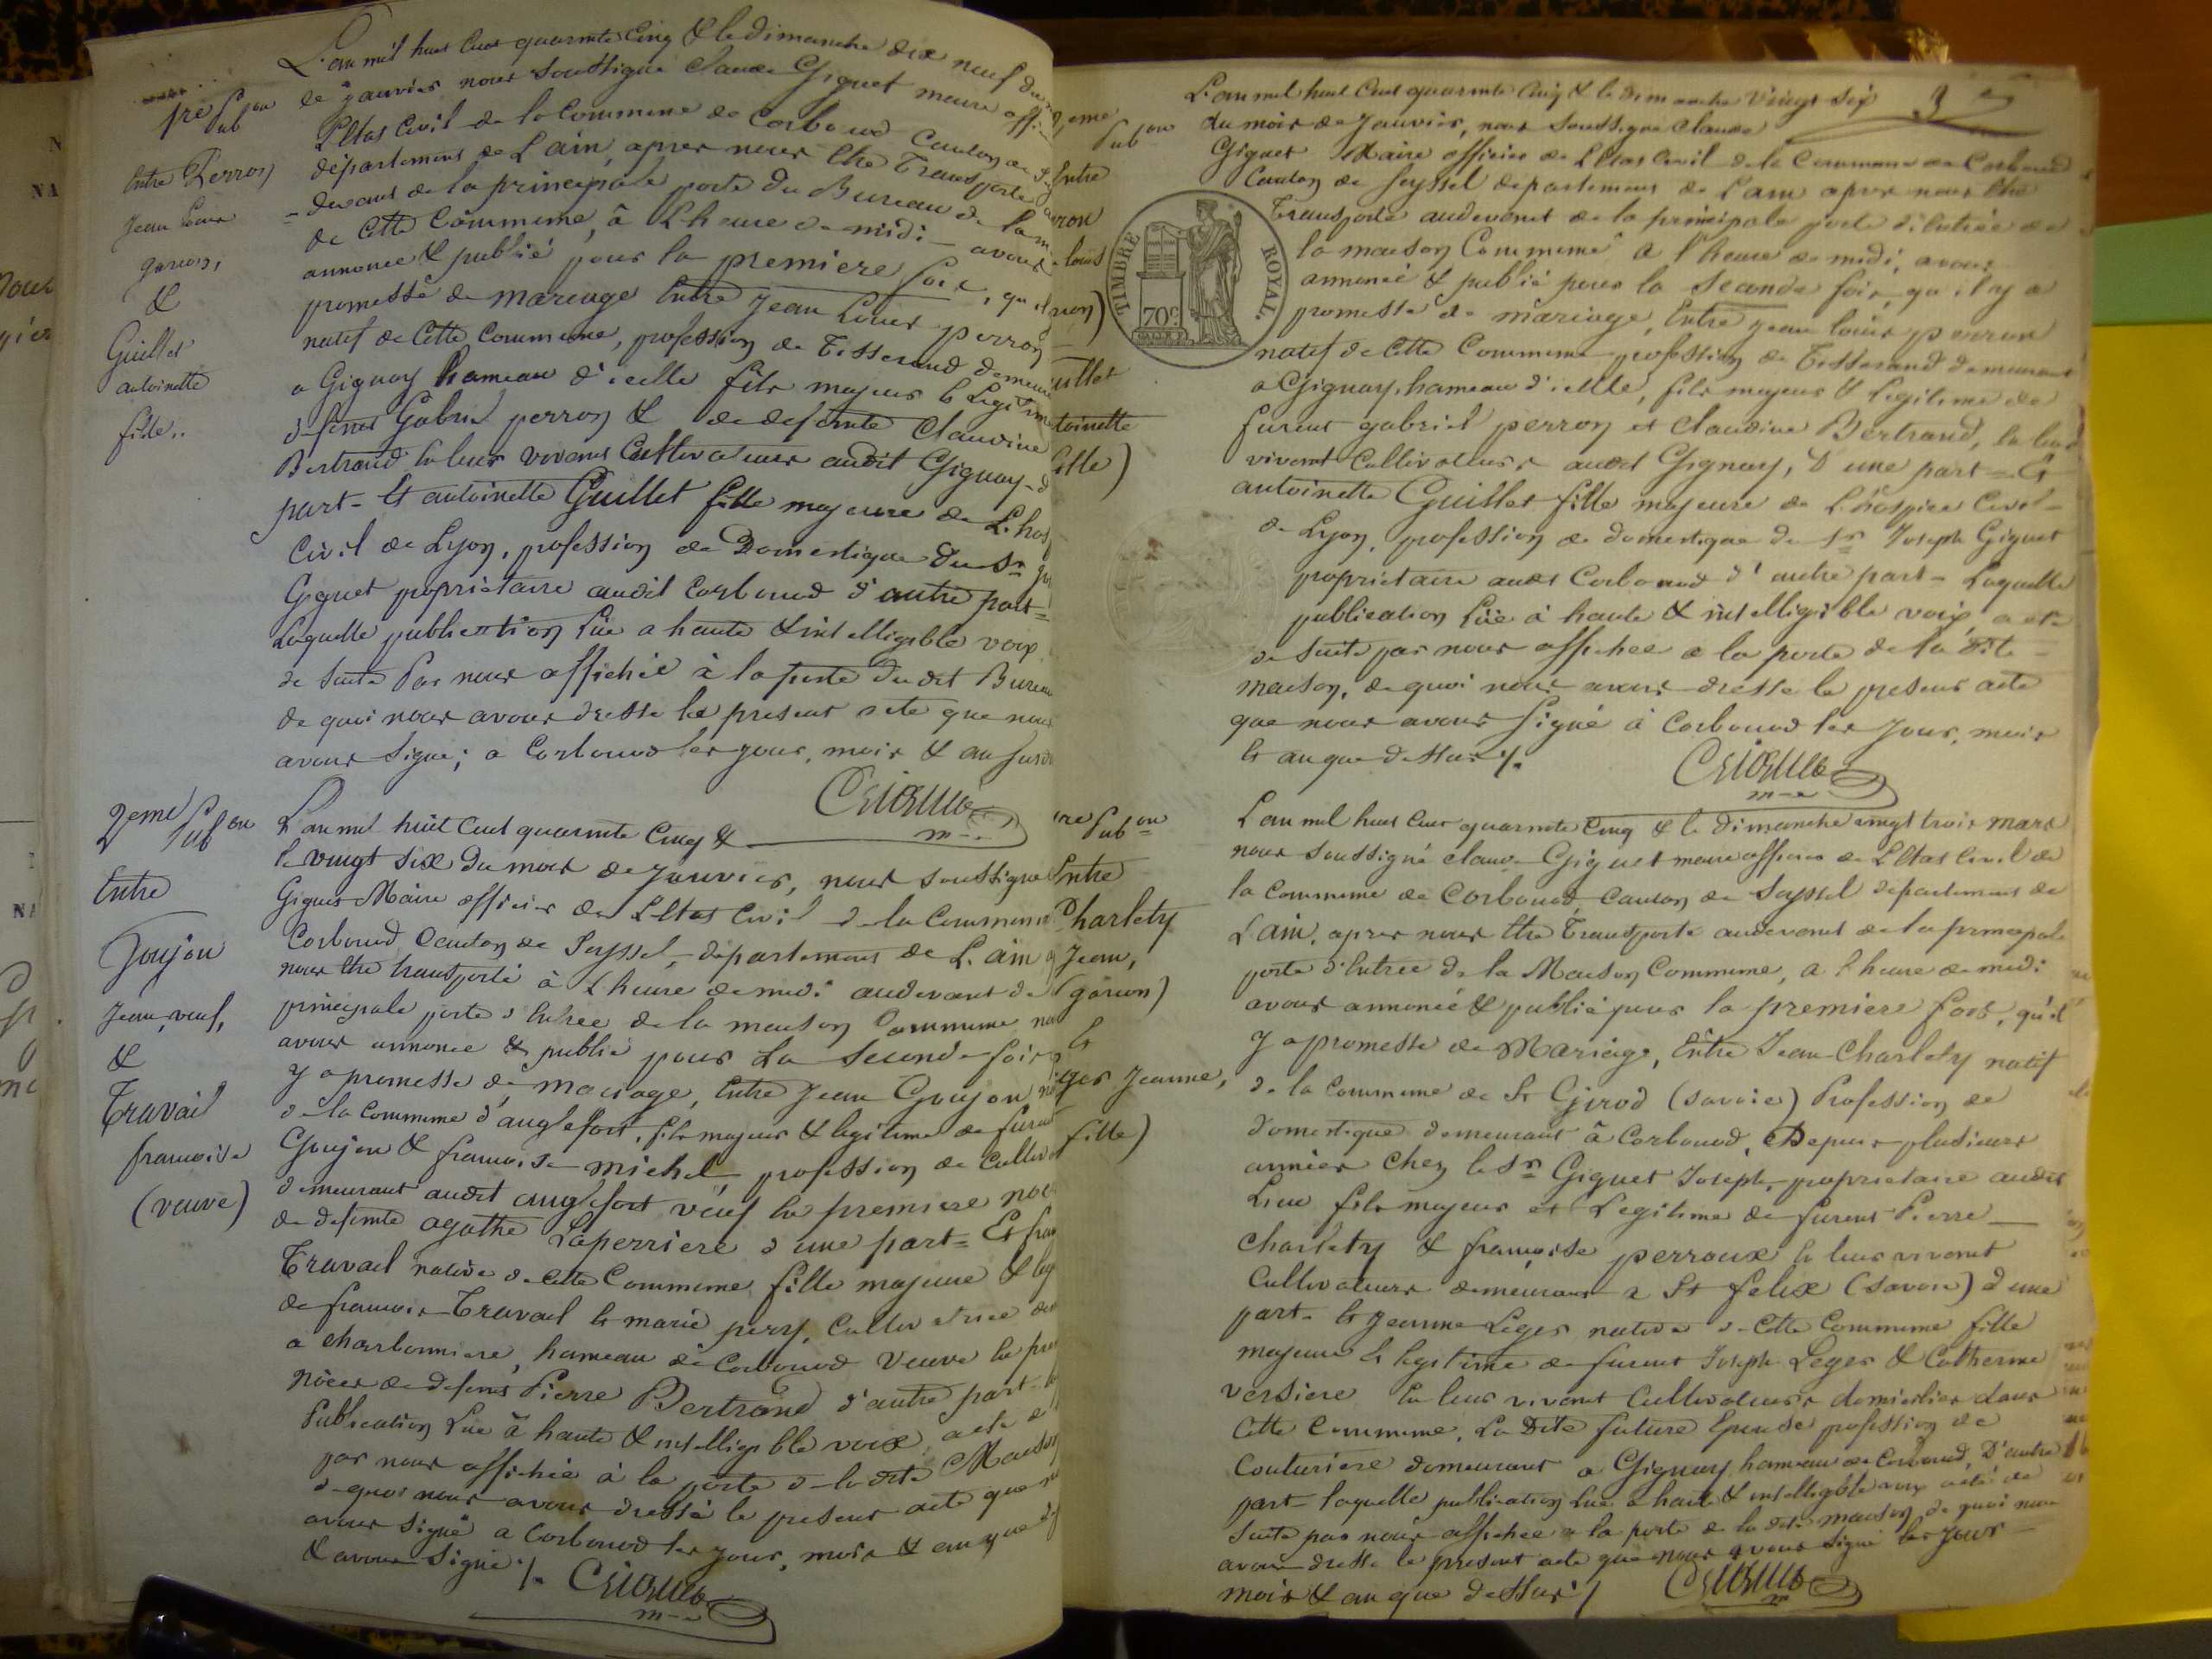 L'an mil huit Cent quarante Cinq & le dimanche dix neuf du
de janvier nous soussigné Claude Giguet maire offi
L'Etat Civil de la Commune de Corbonod Canton de
département de L'ain, apres nous etre Transporté
devant de la principale porte du Bureau de la m
de Cette Commune, à L'heure de midi avons
annoncé & publié pour la premiere fois, qu'il
promesse de mariage Entre Jean Louis perron
natif de Cette Commune, profession de Tisserand demeur
a Gignay hameau d'icelle fils majeur & Legitime
défunt Gabriel perron & de defunte Claudine
Bertrand la leur vivant Cultivateurs audit Gignay d
part - Et antoinette Guillet fille majeure de L'hos
Civil de Lyon, profession de Domestique du Sr
Giguet propriétaire audit Corbonod d'autre part =
Laquelle publication Lüe a haute & intelligible voix
de suite Par nous affichée à la porte du dit Bureau
de quoi nous avons dressé le présent acte que nous
avons signé; a Corbonod les jour, mois & an susd
pre Pubon
Entre Perron
Jean Louis
garçon,
&
Guillet
antoinette
fille..
2eme Pubon
Entre
Goujon
Jean, veuf,
&
Travail
francoise
(veuve)
L'an mil huit Cent quarante Cinq &
le vingt six du mois de Janvier, nous soussigné
Giguet Maire officier de L'Etat Civil de la Commune
Corbonod Canton de Seyssel, département de L'ain
nous etre transporté à L'heure de midi audevant de
principale porte d'Entrée de la maison Commune
avons annoncé & publié pour La Seconde fois
y a promesse de mariage, Entre Jean Goujon
de la Commune d'anglefort, fils majeur & legitime de furent
Goujon & francoise michel profession de Cultiv
demeurant audit anglefort veuf En premiere noc
de defunte agathe Laperriere d'une part = Et fran
Travail native de Cette Commune fille majeure & leg
de francois Travail & marie pery, Cultivatrice
a charbonniere, hameau de Corbonod Veuve En pre
nôces de defunt Pierre Bertrand d'autre part
Publication Lue à haute & intelligible voix, a été
par nous affichée à la porte de la dite Maison
de quoi nous avons dressé le present acte que
avons signé a Corbonod les jour, mois & an que
& avons signé ./.
3
L'an mil huit Cent quarante Cinq & le dimanche Vingt Six
du mois de Janvier, nous soussigné Claude
Giguet Maire officier de L'Etat Civil de la Commune de Corbonod
Canton de Seyssel departement de L'ain apres nous etre
Transporté audevant de la principale porte d'Entrée de
la maison Commune a l'heure de midi, avons
annoncé & publié pour la Seconde fois, qu'il y a
promesse de mariage, Entre Jean Louis perron
natif de Cette Commune profession de Tisserand demeurant
a Gignay, hameau d'icelle, fils majeur & Legitime de
furent gabriel perron et Claudine Bertrand, la leur
vivant Cultivateurs audit Gignay, d'une part = Et
antoinette Guillet fille majeure de L'hospice Civil
de Lyon, profession de domestique de Sr Joseph Giguet
propriétaire audit Corbonod d'autre part - Laquelle
publication Lüe à haute & intelligible voix a été
de suite par nous affichée a la porte de la dite
maison, de quoi nous avons dressé le présent acte
que nous avons signé à Corbonod les jour, mois
& an que dessus ./.
TIMBRE ROYAL.
70c
eme
Pubon
Entre
ron
louis
çon)
uillet
toinette
fille)
re Pubon
Entre
Charlety
Jean,
(garçon)
&
ger Jeanne,
fille)
L'an mil huit Cent quarante Cinq & le dimanche vingt trois mars
nous soussigné Claude Giguet maire officier de L'Etat Civil de
la Commune de Corbonod, Canton de Seyssel departement de
L'ain, apres nous etre Transporté audevant de la principale
porte d'Entrée de la Maison Commune, a l'heure de midi
avons annoncé & publié pour la premiere fois, qu'il
y a promesse de Mariage, Entre Jean Charlety natif
de la Commune de St Girod (savoie) Profession de
domestique demeurant à Corbonod, Depuis plusieurs
années Chez le Sr Giguet Joseph, propriétaire audit
Lieu fils majeur et Legitime de furent Pierre
Charlety & françoise perroux la leur vivant
Cultivateurs demeurant a St felix (savoie) d'une
part - & Jeanne Leger native de Cette Commune fille
majeure & legitime de furent Joseph Leger & Catherine
versiere la leur vivant Cultivateurs domiciliés dans
Cette Commune, La Dite future Epouse profession de
Couturiere demeurant a Gignay hameau de Corbonod, D'autre
part - laquelle publication lue à haute & intelligible voix a été de
suite par nous affichée a la porte de la dite maison, de quoi nous
avons dressé le présent acte que nous avons signé les Jour
mois & an que dessus ./